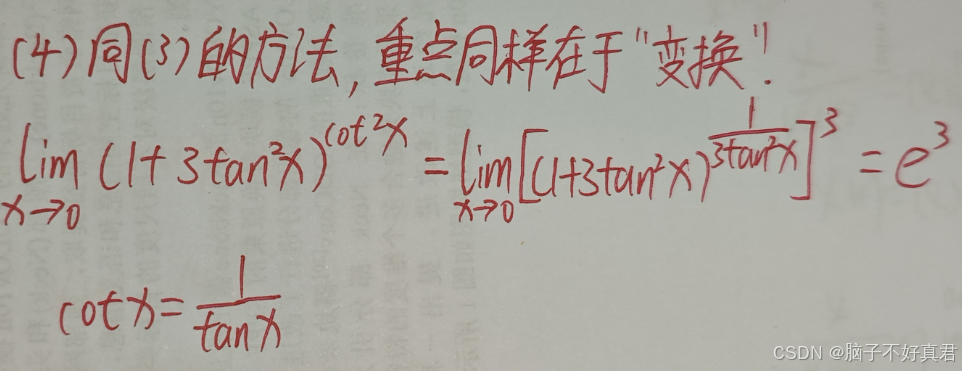 (4)同(3)的方法,重点同样在于"变换"!
lim x→0 (1+3tan²x)^cot²x = lim x→0 [(1+3tan²x)^1/3tan²x]^3 = e^3
cotx = 1/tanx
CSDN @脑子不好真君